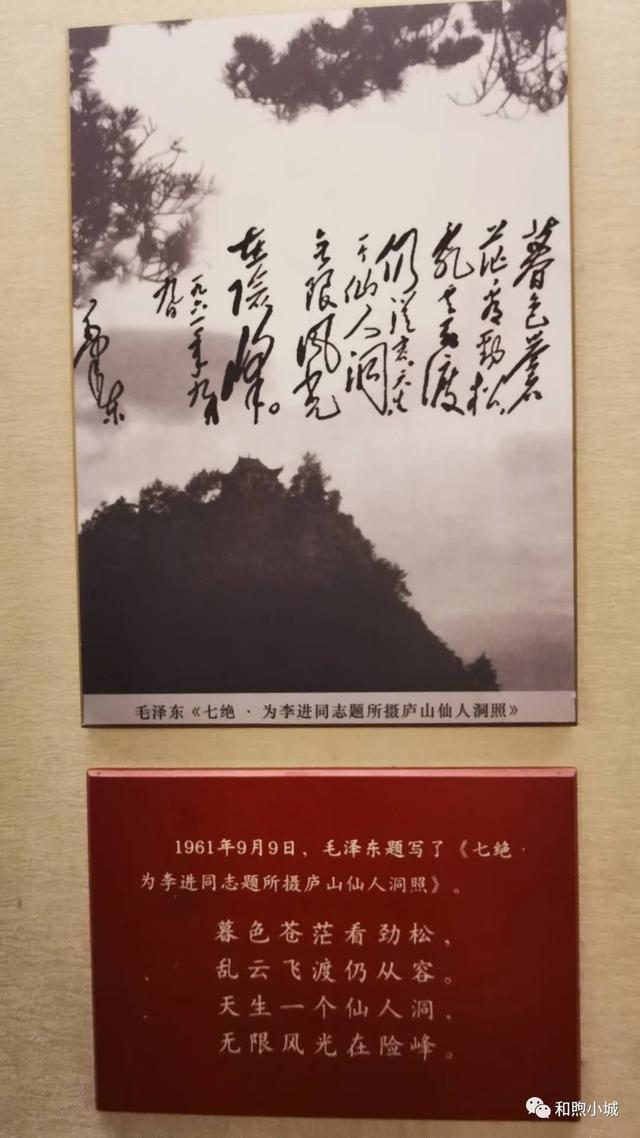 暮色苍
茫看劲松
乱云飞渡
仍从容天生
一个仙人洞
无限風光
在險峰。
一九六一年九月
九日
毛泽东
毛泽东《七绝·为李进同志题所摄庐山仙人洞照》
1961年9月9日，毛泽东题写了《七绝·
为李进同志题所摄庐山仙人洞照》。
暮色苍茫看劲松，
乱云飞渡仍从容。
天生一个仙人洞，
无限风光在险峰。
和煦小城